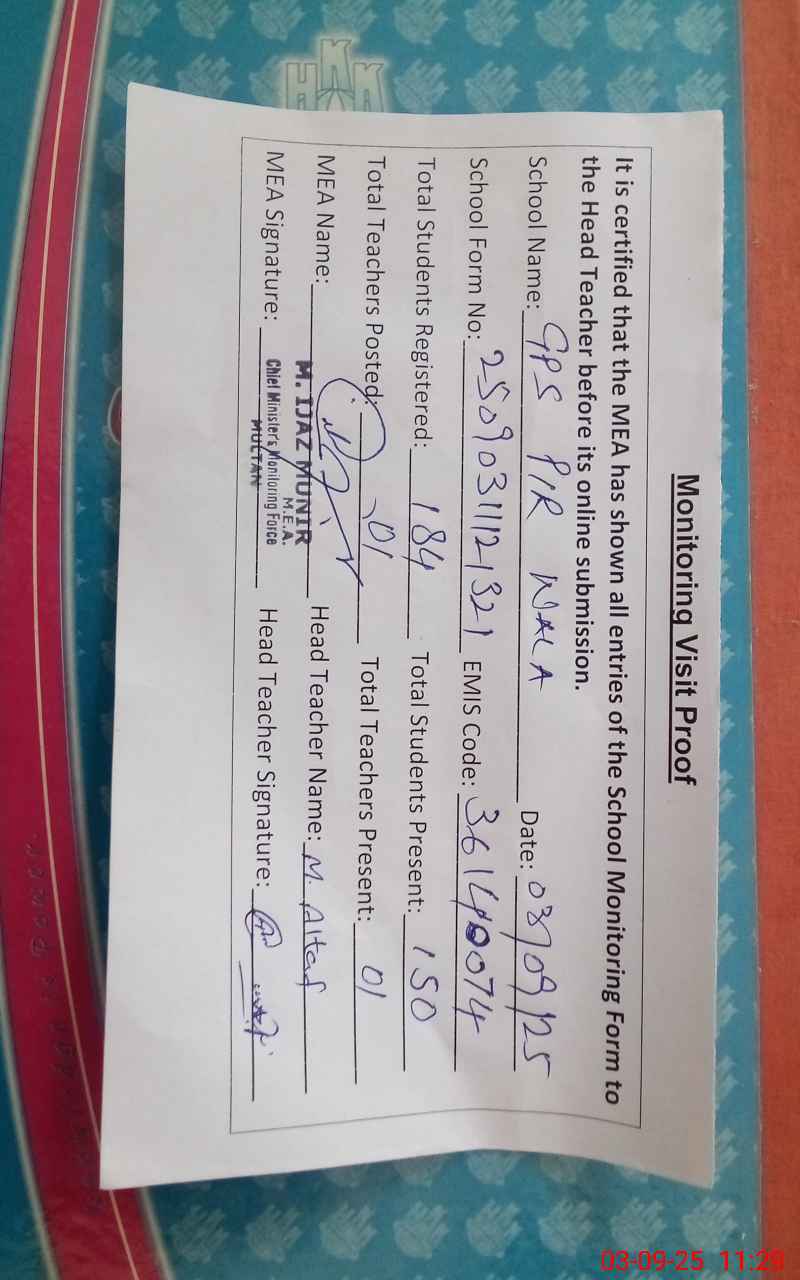 Monitoring Visit Proof
It is certified that the MEA has shown all entries of the School Monitoring Form to
the Head Teacher before its online submission.
School Name: GPS PIR WALA Date: 03/09/25
School Form No: 2509031121321 EMIS Code: 36140074
Total Students Registered: 184 Total Students Present: 150
Total Teachers Posted: 01 Total Teachers Present: 01
MEA Name: M. IJAZ MUNIR Head Teacher Name: M. Altaf
M.E.A.
MEA Signature: Chief Minister's Monitoring Force Head Teacher Signature:
MULTAN
03-09-25 11:29